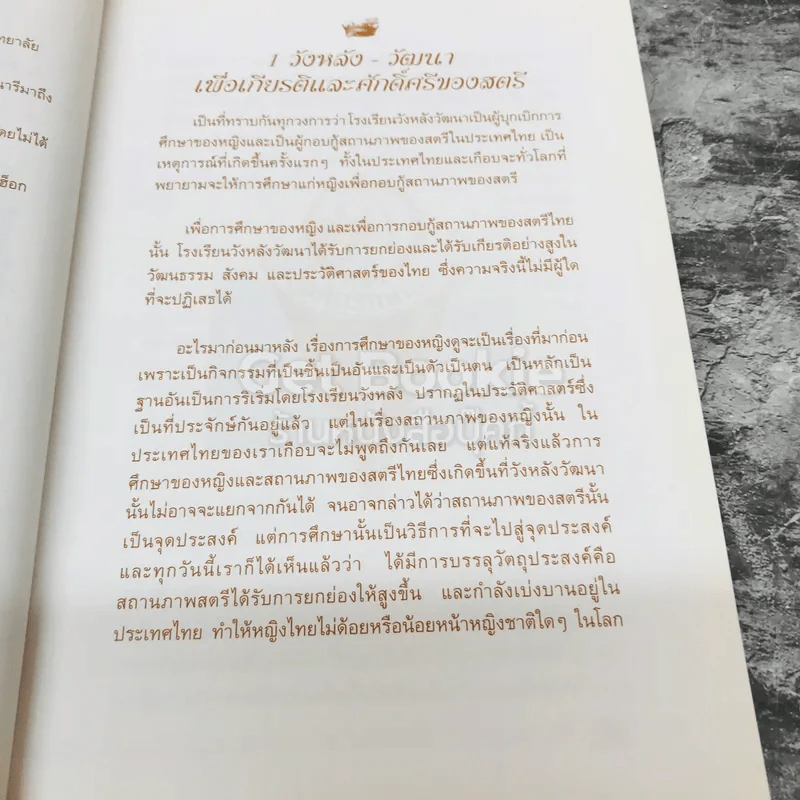 ทยาลัย
นารีมาถึง
ดยไม่ได้
ฮ็อก
1 วังหลัง - วัฒนา
เพื่อเกียรติและศักดิ์ศรีของสตรี
เป็นที่ทราบกันทุกวงการว่า โรงเรียนวังหลังวัฒนาเป็นผู้บุกเบิกการ
ศึกษาของหญิงและเป็นผู้กอบกู้สถานภาพของสตรีในประเทศไทย เป็น
เหตุการณ์ที่เกิดขึ้นครั้งแรกๆ ทั้งในประเทศไทยและเกือบจะทั่วโลกที่
พยายามจะให้การศึกษาแก่หญิงเพื่อกอบกู้สถานภาพของสตรี
เพื่อการศึกษาของหญิง และเพื่อการกอบกู้สถานภาพของสตรีไทย
นั้น โรงเรียนวังหลังวัฒนาได้รับการยกย่องและได้รับเกียรติอย่างสูงใน
วัฒนธรรม สังคม และประวัติศาสตร์ของไทย ซึ่งความจริงนี้ไม่มีผู้ใด
ที่จะปฏิเสธได้
อะไรมาก่อนมาหลัง เรื่องการศึกษาของหญิงดูจะเป็นเรื่องที่มาก่อน
เพราะเป็นกิจกรรมที่เป็นชิ้นเป็นอันและเป็นตัวเป็นตน เป็นหลักเป็น
ฐานอันเป็นการริเริ่มโดยโรงเรียนวังหลัง ปรากฏในประวัติศาสตร์ซึ่ง
เป็นที่ประจักษ์กันอยู่แล้ว แต่ในเรื่องสถานภาพของหญิงนั้น ใน
ประเทศไทยของเราเกือบจะไม่พูดถึงกันเลย แต่แท้จริงแล้วการ
ศึกษาของหญิงและสถานภาพของสตรีไทยซึ่งเกิดขึ้นที่วังหลังวัฒนา
นั้นไม่อาจจะแยกจากกันได้ จนอาจกล่าวได้ว่าสถานภาพของสตรีนั้น
เป็นจุดประสงค์ แต่การศึกษานั้นเป็นวิธีการที่จะไปสู่จุดประสงค์
และทุกวันนี้เราก็ได้เห็นแล้วว่า ได้มีการบรรลุวัตถุประสงค์คือ
สถานภาพสตรีได้รับการยกย่องให้สูงขึ้น และกำลังเบ่งบานอยู่ใน
ประเทศไทย ทำให้หญิงไทยไม่ด้อยหรือน้อยหน้าหญิงชาติใดๆ ในโลก
Get Bookie
ร้านหนังสือบุ๊คกี้